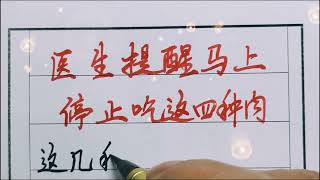 医生提醒马上
停止吃这四种肉
这几